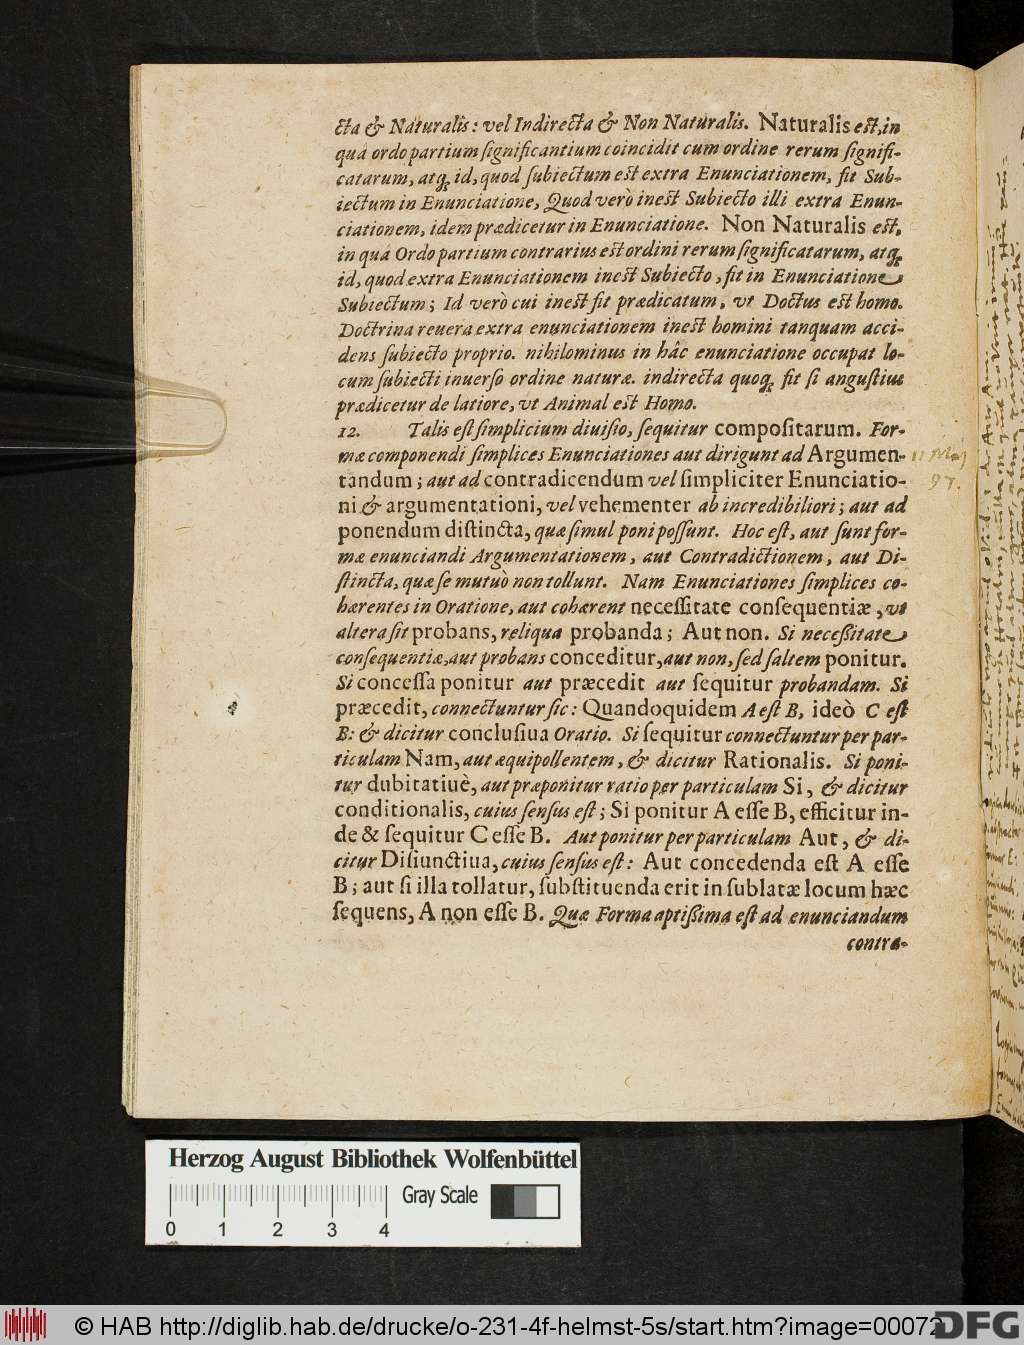 cta & Naturalis: vel Indirecta & Non Naturalis. Naturalis est, in
quá ordo partium significantium coincidit cum ordine rerum signifi-
catarum, atq; id, quod subiectum est extra Enunciationem, fit Sub-
iectum in Enunciatione, Quod verò inest Subiecto illi extra Enun-
ciationem, idem prædicetur in Enunciatione. Non Naturalis est,
in quá Ordo partium contrarius est ordini rerum significatarum, atq;
id, quod extra Enunciationem inest Subiecto, fit in Enunciatione
Subiectum; Id verò cui inest fit prædicatum, vt Doctus est homo.
Doctrina reuera extra enunciationem inest homini tanquam acci-
dens subiecto proprio. nihilominus in hâc enunciatione occupat lo-
cum subiecti inuerso ordine naturæ. indirecta quoq; fit si angustius
prædicetur de latiore, vt Animal est Homo.
12. Talis est simplicium diuisio, sequitur compositarum. For-
mæ componendi simplices Enunciationes aut dirigunt ad Argumen-
tandum; aut ad contradicendum vel simpliciter Enunciatio-
ni & argumentationi, vel vehementer ab incredibiliori; aut ad
ponendum distincta, quæ simul poni possunt. Hoc est, aut sunt for-
mæ enunciandi Argumentationem, aut Contradictionem, aut Di-
stincta, quæ se mutuò non tollunt. Nam Enunciationes simplices co-
hærentes in Oratione, aut cohærent necessitate consequentiæ, vt
altera sit probans, reliqua probanda; Aut non. Si necessitate
consequentiæ, aut probans conceditur, aut non, sed saltem ponitur.
Si concessa ponitur aut præcedit aut sequitur probandam. Si
præcedit, connectuntur sic: Quandoquidem A est B, ideò C est
B: & dicitur conclusiua Oratio. Si sequitur connectuntur per par-
ticulam Nam, aut æquipollentem, & dicitur Rationalis. Si poni-
tur dubitatiuè, aut præponitur ratio per particulam Si, & dicitur
conditionalis, cuius sensus est; Si ponitur A esse B, efficitur in-
de & sequitur C esse B. Aut ponitur per particulam Aut, & di-
citur Disiunctiua, cuius sensus est: Aut concedenda est A esse
B; aut si illa tollatur, substituenda erit in sublatæ locum hæc
sequens, A non esse B. Quæ Forma aptissima est ad enunciandum
contra-
11 Maij
97.
Herzog August Bibliothek Wolfenbüttel
Gray Scale
0 1 2 3 4
© HAB http://diglib.hab.de/drucke/o-231-4f-helmst-5s/start.htm?image=00072
DFG